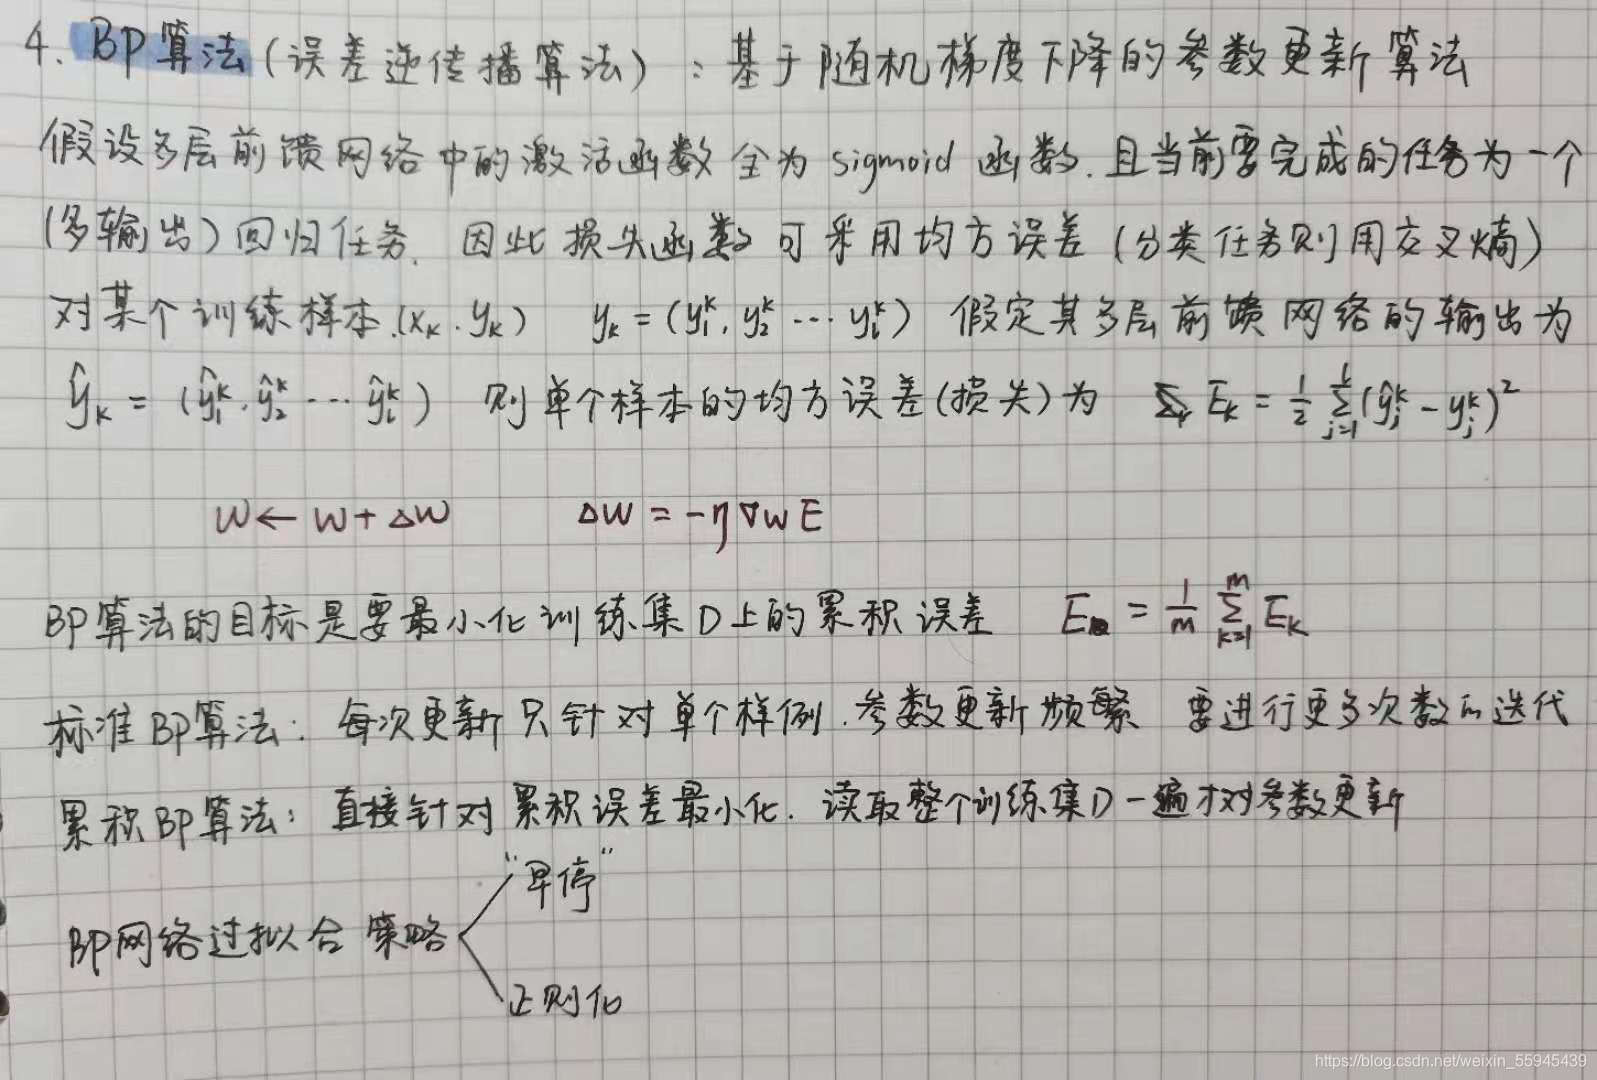 4. BP算法(误差逆传播算法):基于随机梯度下降的参数更新算法
假设多层前馈网络中的激活函数全为 sigmoid 函数.且当前要完成的任务为一个
(多输出)回归任务. 因此损失函数可采用均方误差(分类任务则用交叉熵)
对某个训练样本.(xₖ.yₖ) yₖ=(y₁ᵏ.y₂ᵏ⋯yₗᵏ) 假定其多层前馈网络的输出为
ŷₖ=(ŷ₁ᵏ.ŷ₂ᵏ⋯ŷₗᵏ) 则单个样本的均方误差(损失)为 Eₖ=1/2 Σⱼ₌₁ˡ(ŷⱼᵏ-yⱼᵏ)²
W←W+△W △W=-η∇wE
BP算法的目标是要最小化训练集D上的累积误差 E=1/m Σₖ₌₁ᵐEₖ
标准BP算法: 每次更新只针对单个样例.参数更新频繁 要进行更多次数的迭代
累积BP算法: 直接针对累积误差最小化. 读取整个训练集D一遍才对参数更新
"早停"
BP网络过拟合策略
正则化
https://blog.csdn.net/weixin_55945439